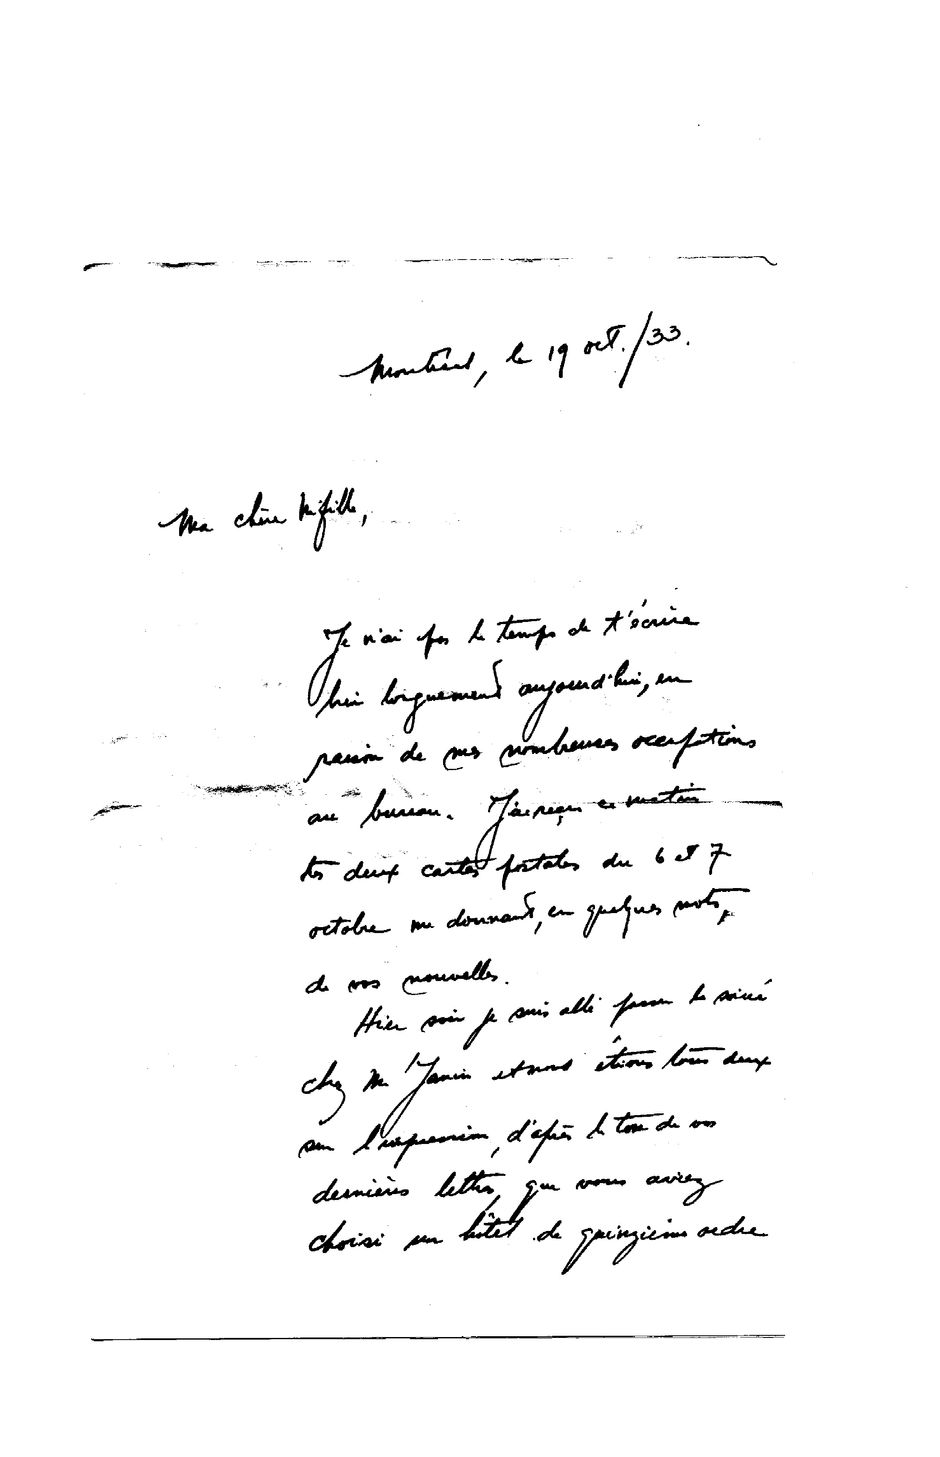 Montréal, le 19 oct./33.
Ma chère Mifille,
Je n'ai pas le temps de t'écrire
bien longuement aujourd'hui, en
raison de mes nombreuses occupations
au bureau. J'ai reçu ce matin
tes deux cartes postales du 6 et 7
octobre me donnant, en quelques mots,
de vos nouvelles.
Hier soir je suis allé passer la soirée
chez M Janin et nous étions tous deux
sous l'impression, d'après le ton de vos
dernières lettres, que vous aviez
choisi un hôtel de quinzième ordre